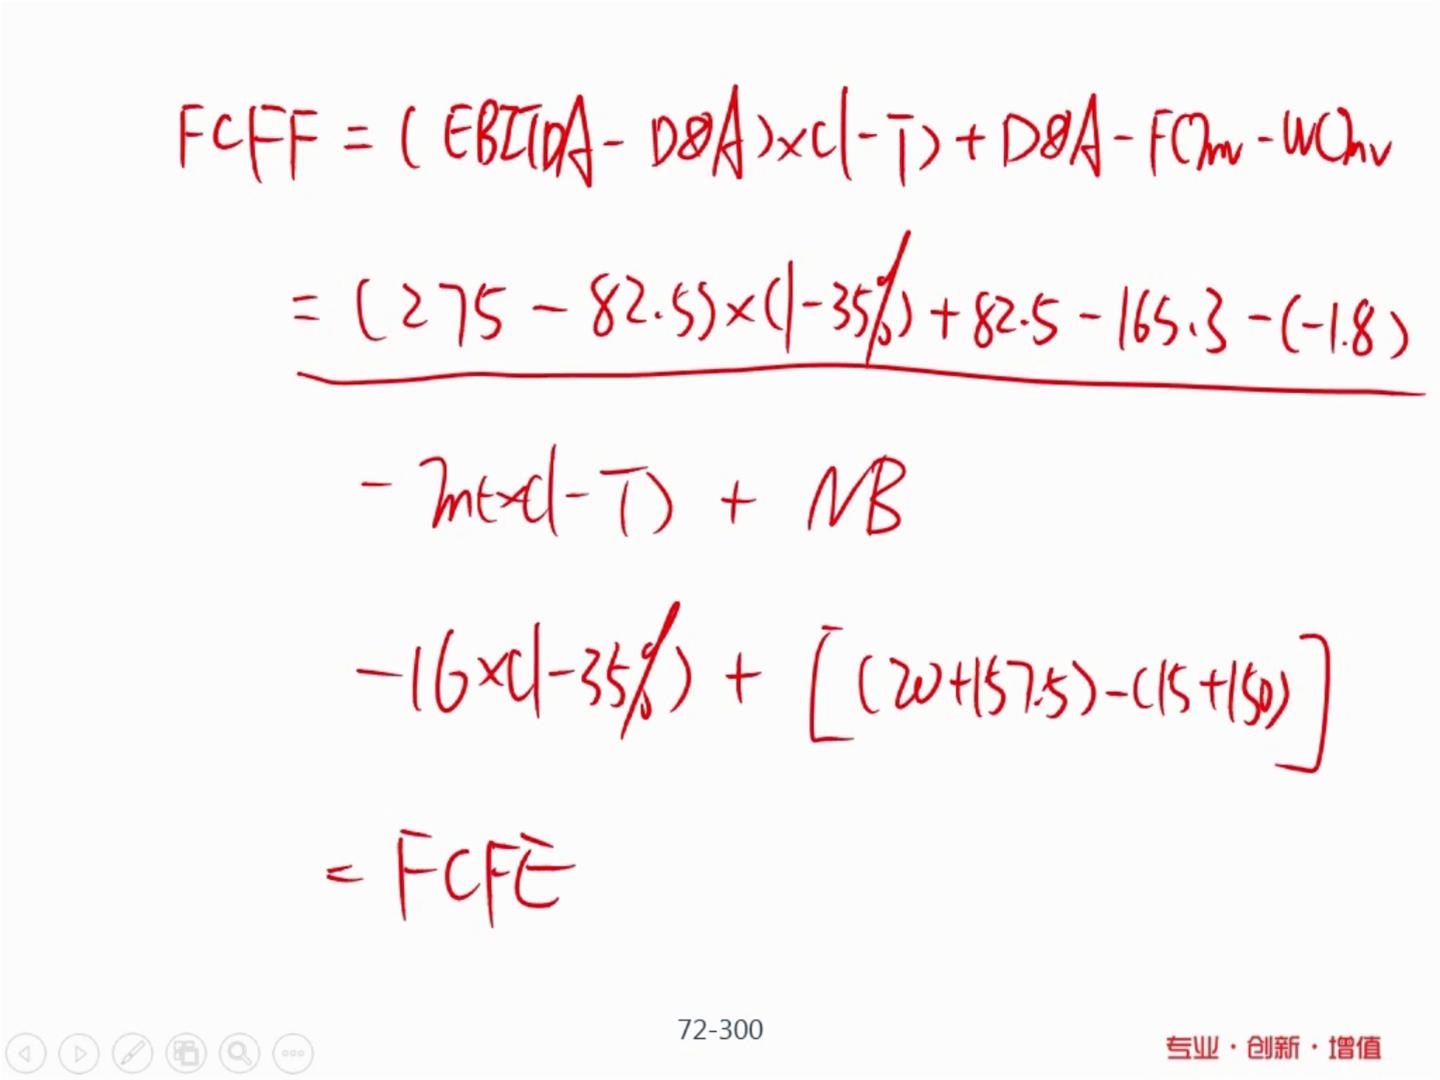 FCFF = (EBITDA - D&A)×(1-T) + D&A - FCInv - WCInv
= (275 - 82.5)×(1-35%) + 82.5 - 165.3 - (-1.8)
- Int×(1-T) + NB
-16×(1-35%) + [(20+157.5)-(15+150)]
= FCFE
72-300
专业·创新·增值